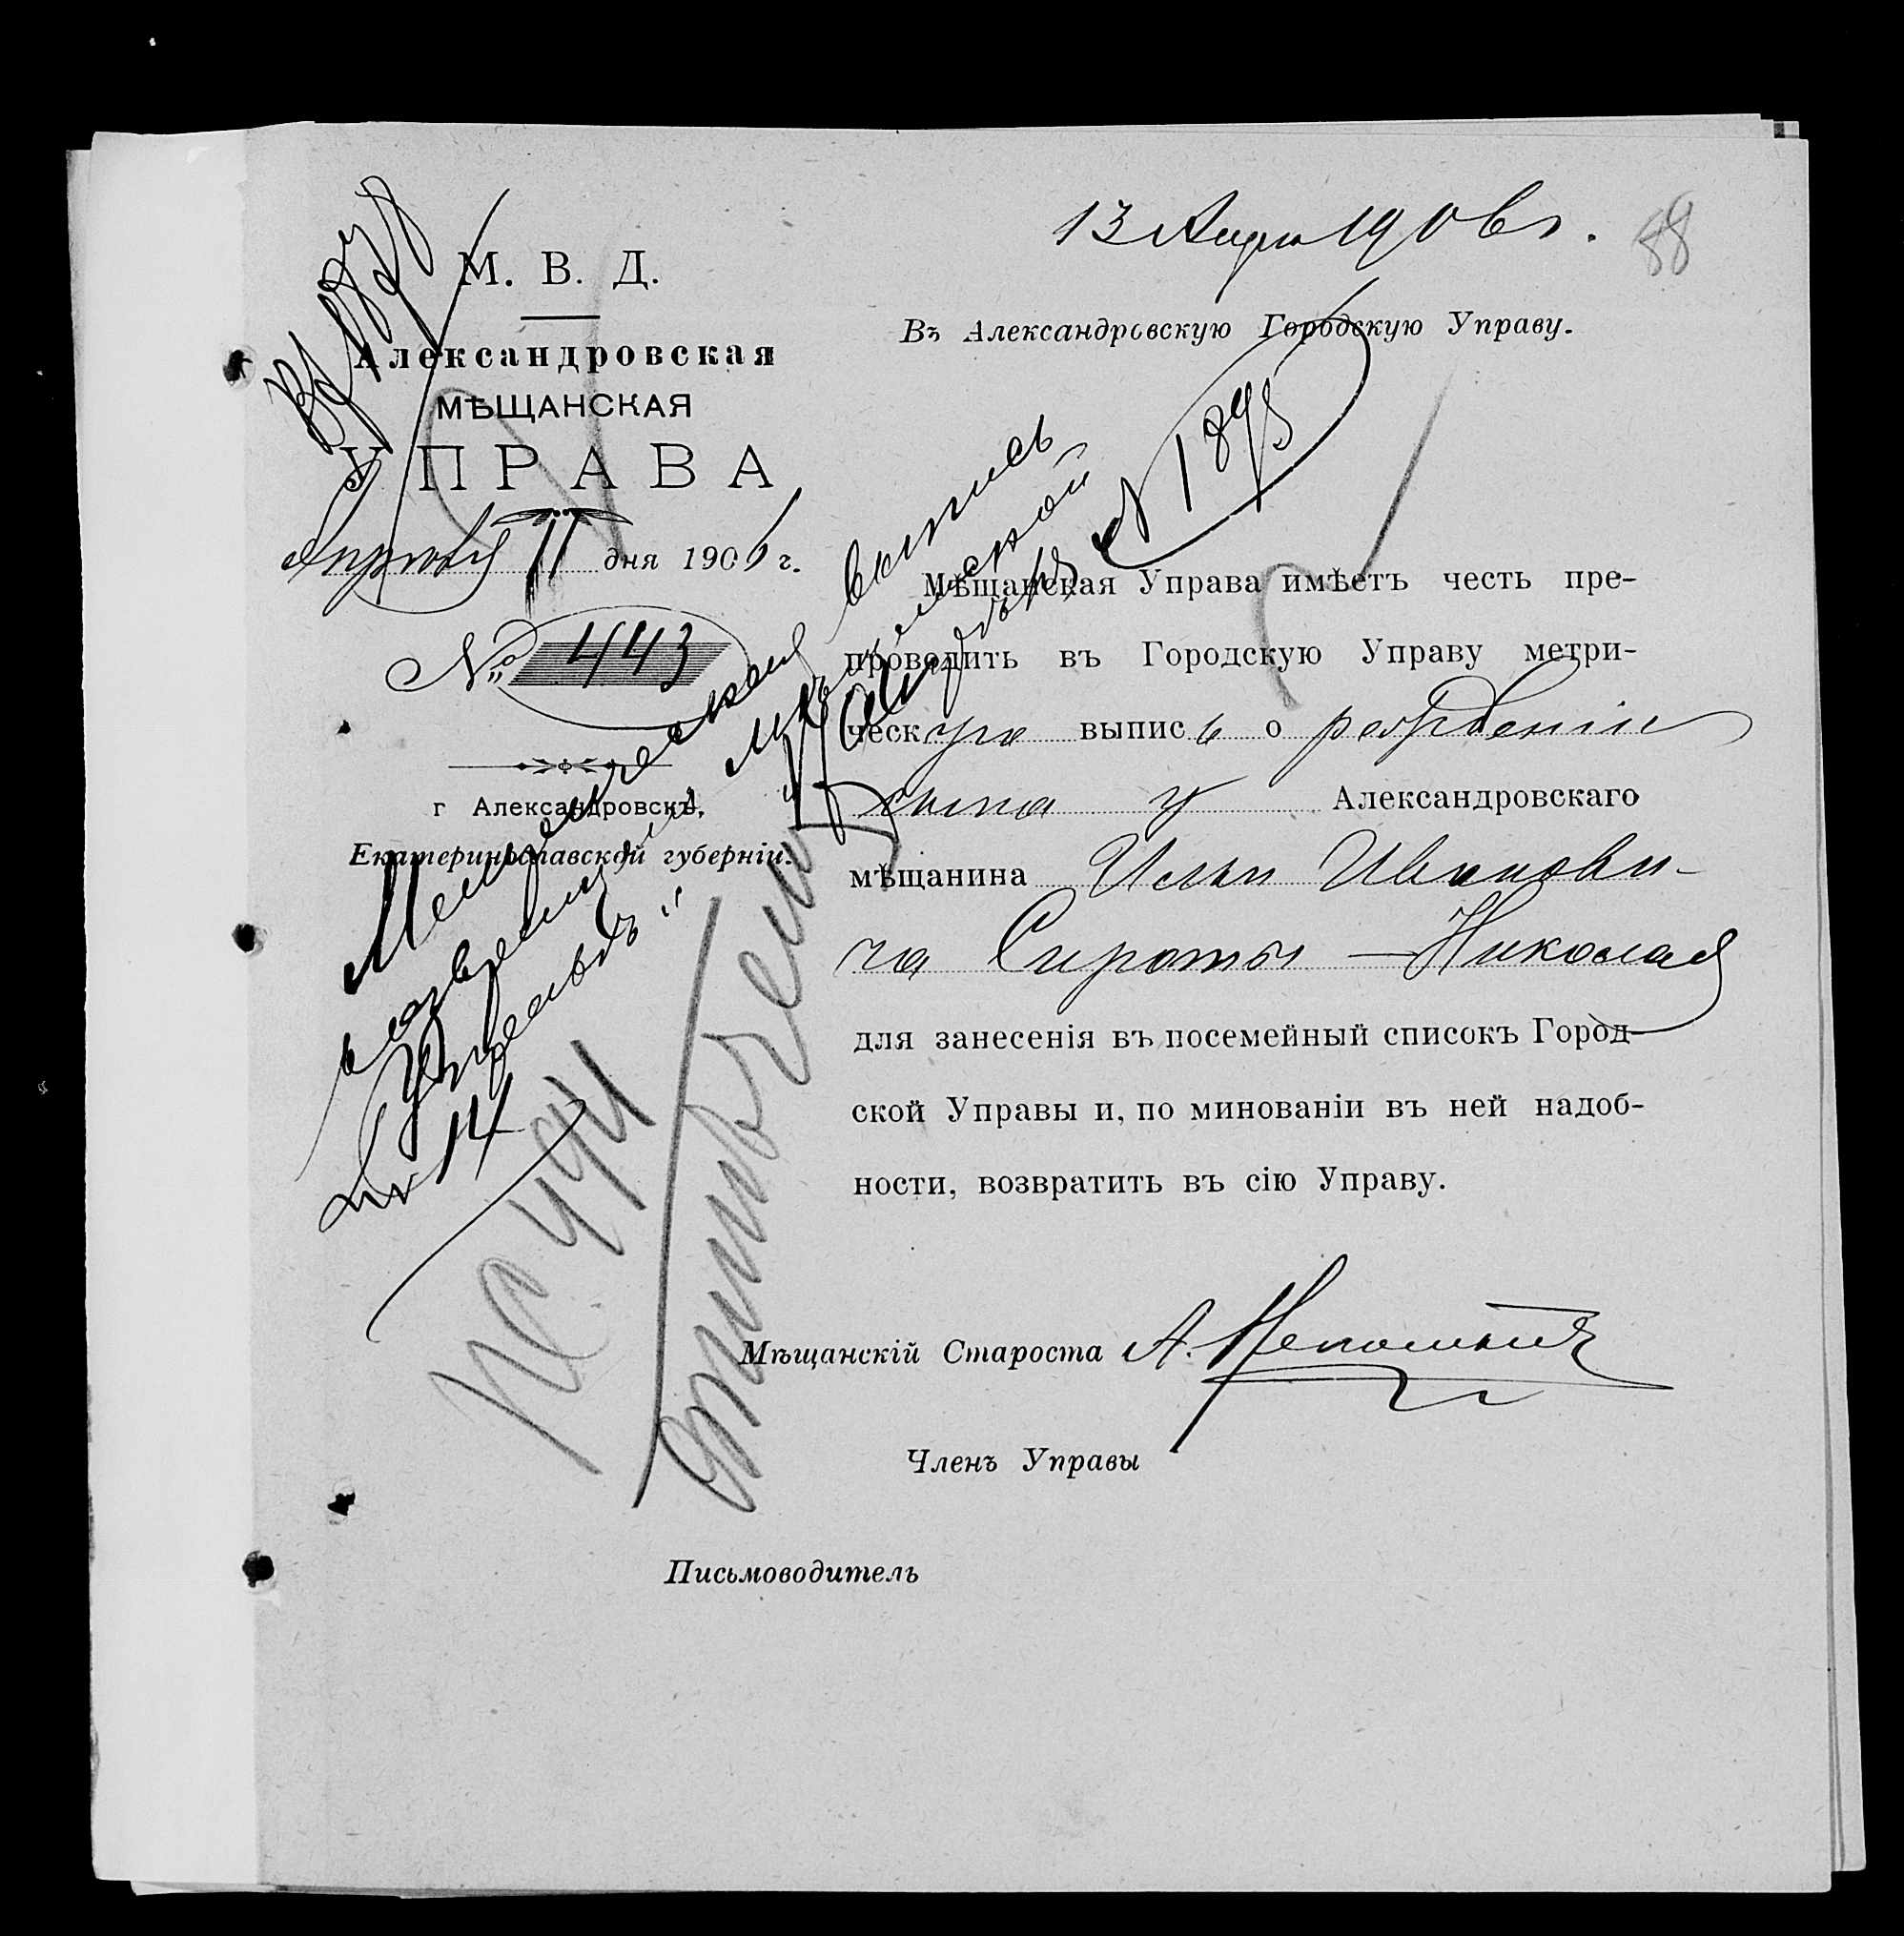 13 Апрля 1906 г.
88
М. В. Д.
Александровская
МѢЩАНСКАЯ
УПРАВА
Апрѣля 11 дня 1906 г.
№ 443
г Александровскъ,
Екатеринославской губерніи.
Въ Александровскую Городскую Управу.
№ 1895
Мѣщанская Управа имѣетъ честь пре-
проводить въ Городскую Управу метри-
ческую выпись о рожденіи
сына у Александровскаго
мѣщанина Ильи Иванови-
ча Сироты — Николая
для занесенія въ посемейный списокъ Город-
ской Управы и, по минованіи въ ней надоб-
ности, возвратить въ сію Управу.
Метрическая выпись
возвращена мѣщанской
Управѣ 14 Апрѣля
Мѣщанскій Староста А.
Членъ Управы
Письмоводитель